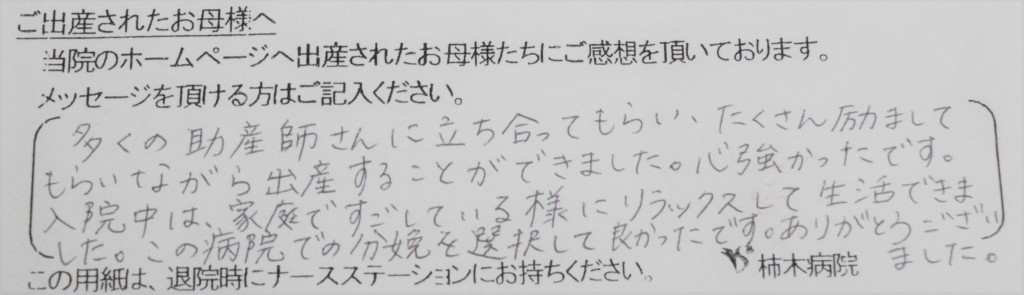 ご出産されたお母様へ
当院のホームページへ出産されたお母様たちにご感想を頂いております。
メッセージを頂ける方はご記入ください。
多くの助産師さんに立ち合ってもらい、たくさん励まして
もらいながら出産することができました。心強かったです。
入院中は、家庭ですごしている様にリラックスして生活できま
した。この病院での分娩を選択して良かったです。ありがとうござい
ました。
この用紙は、退院時にナースステーションにお持ちください。
柿木病院